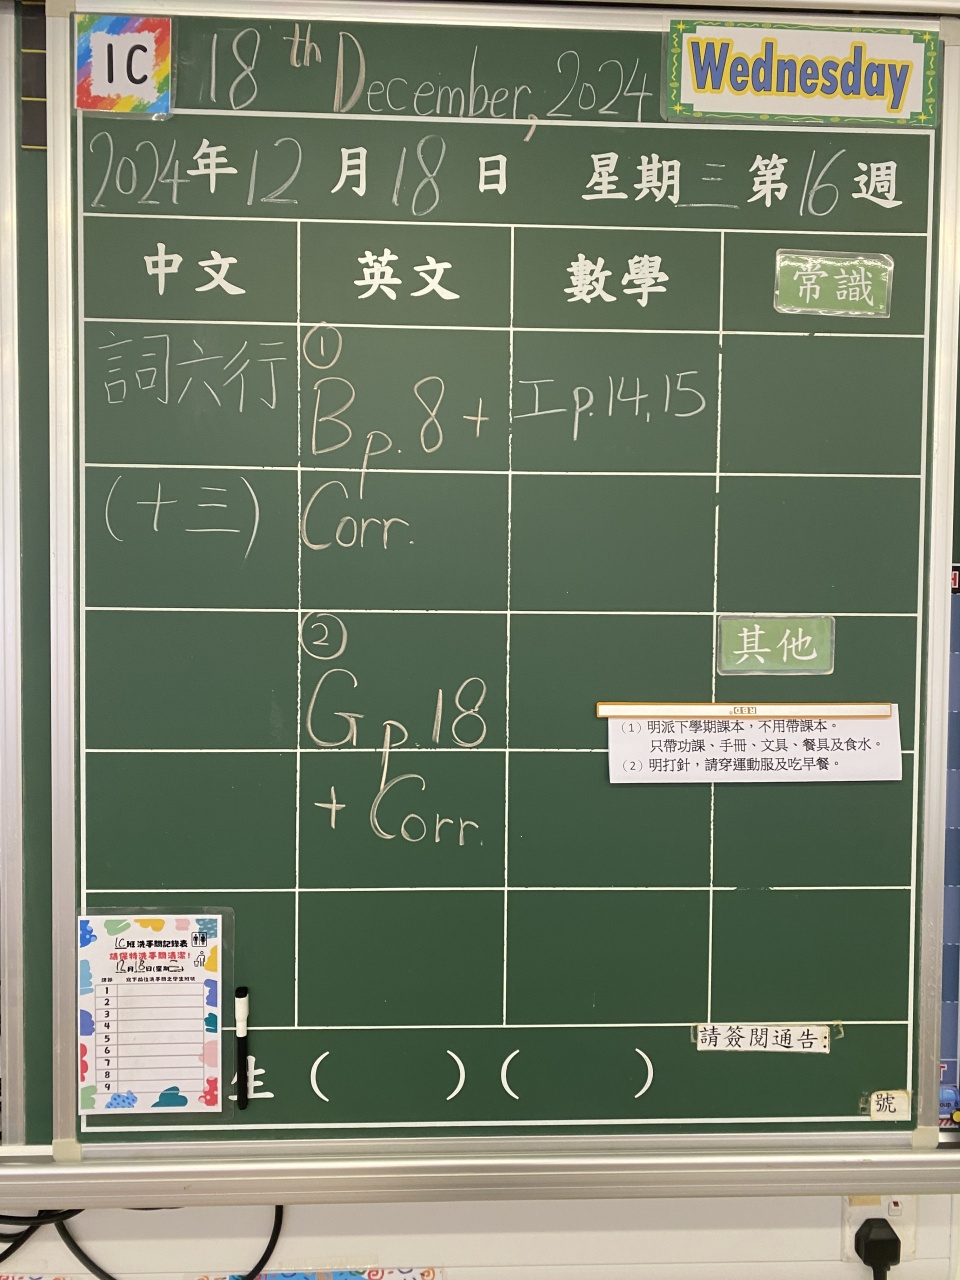 1C
18th December, 2024
Wednesday
2024年12月18日 星期三第16週
中文 英文 數學 常識
詞六行
(十三)
①
B p. 8 +
Corr.
②
G p. 18
+ Corr.
I p. 14, 15
其他
RBD
(1) 明派下學期課本，不用帶課本。
只帶功課、手冊、文具、餐具及食水。
(2) 明打針，請穿運動服及吃早餐。
1C班洗手間記錄表
請保持洗手間清潔！
12月18日(星期三)
1
2
3
4
5
6
7
8
9
請簽閱通告:
生 ( ) ( )
號